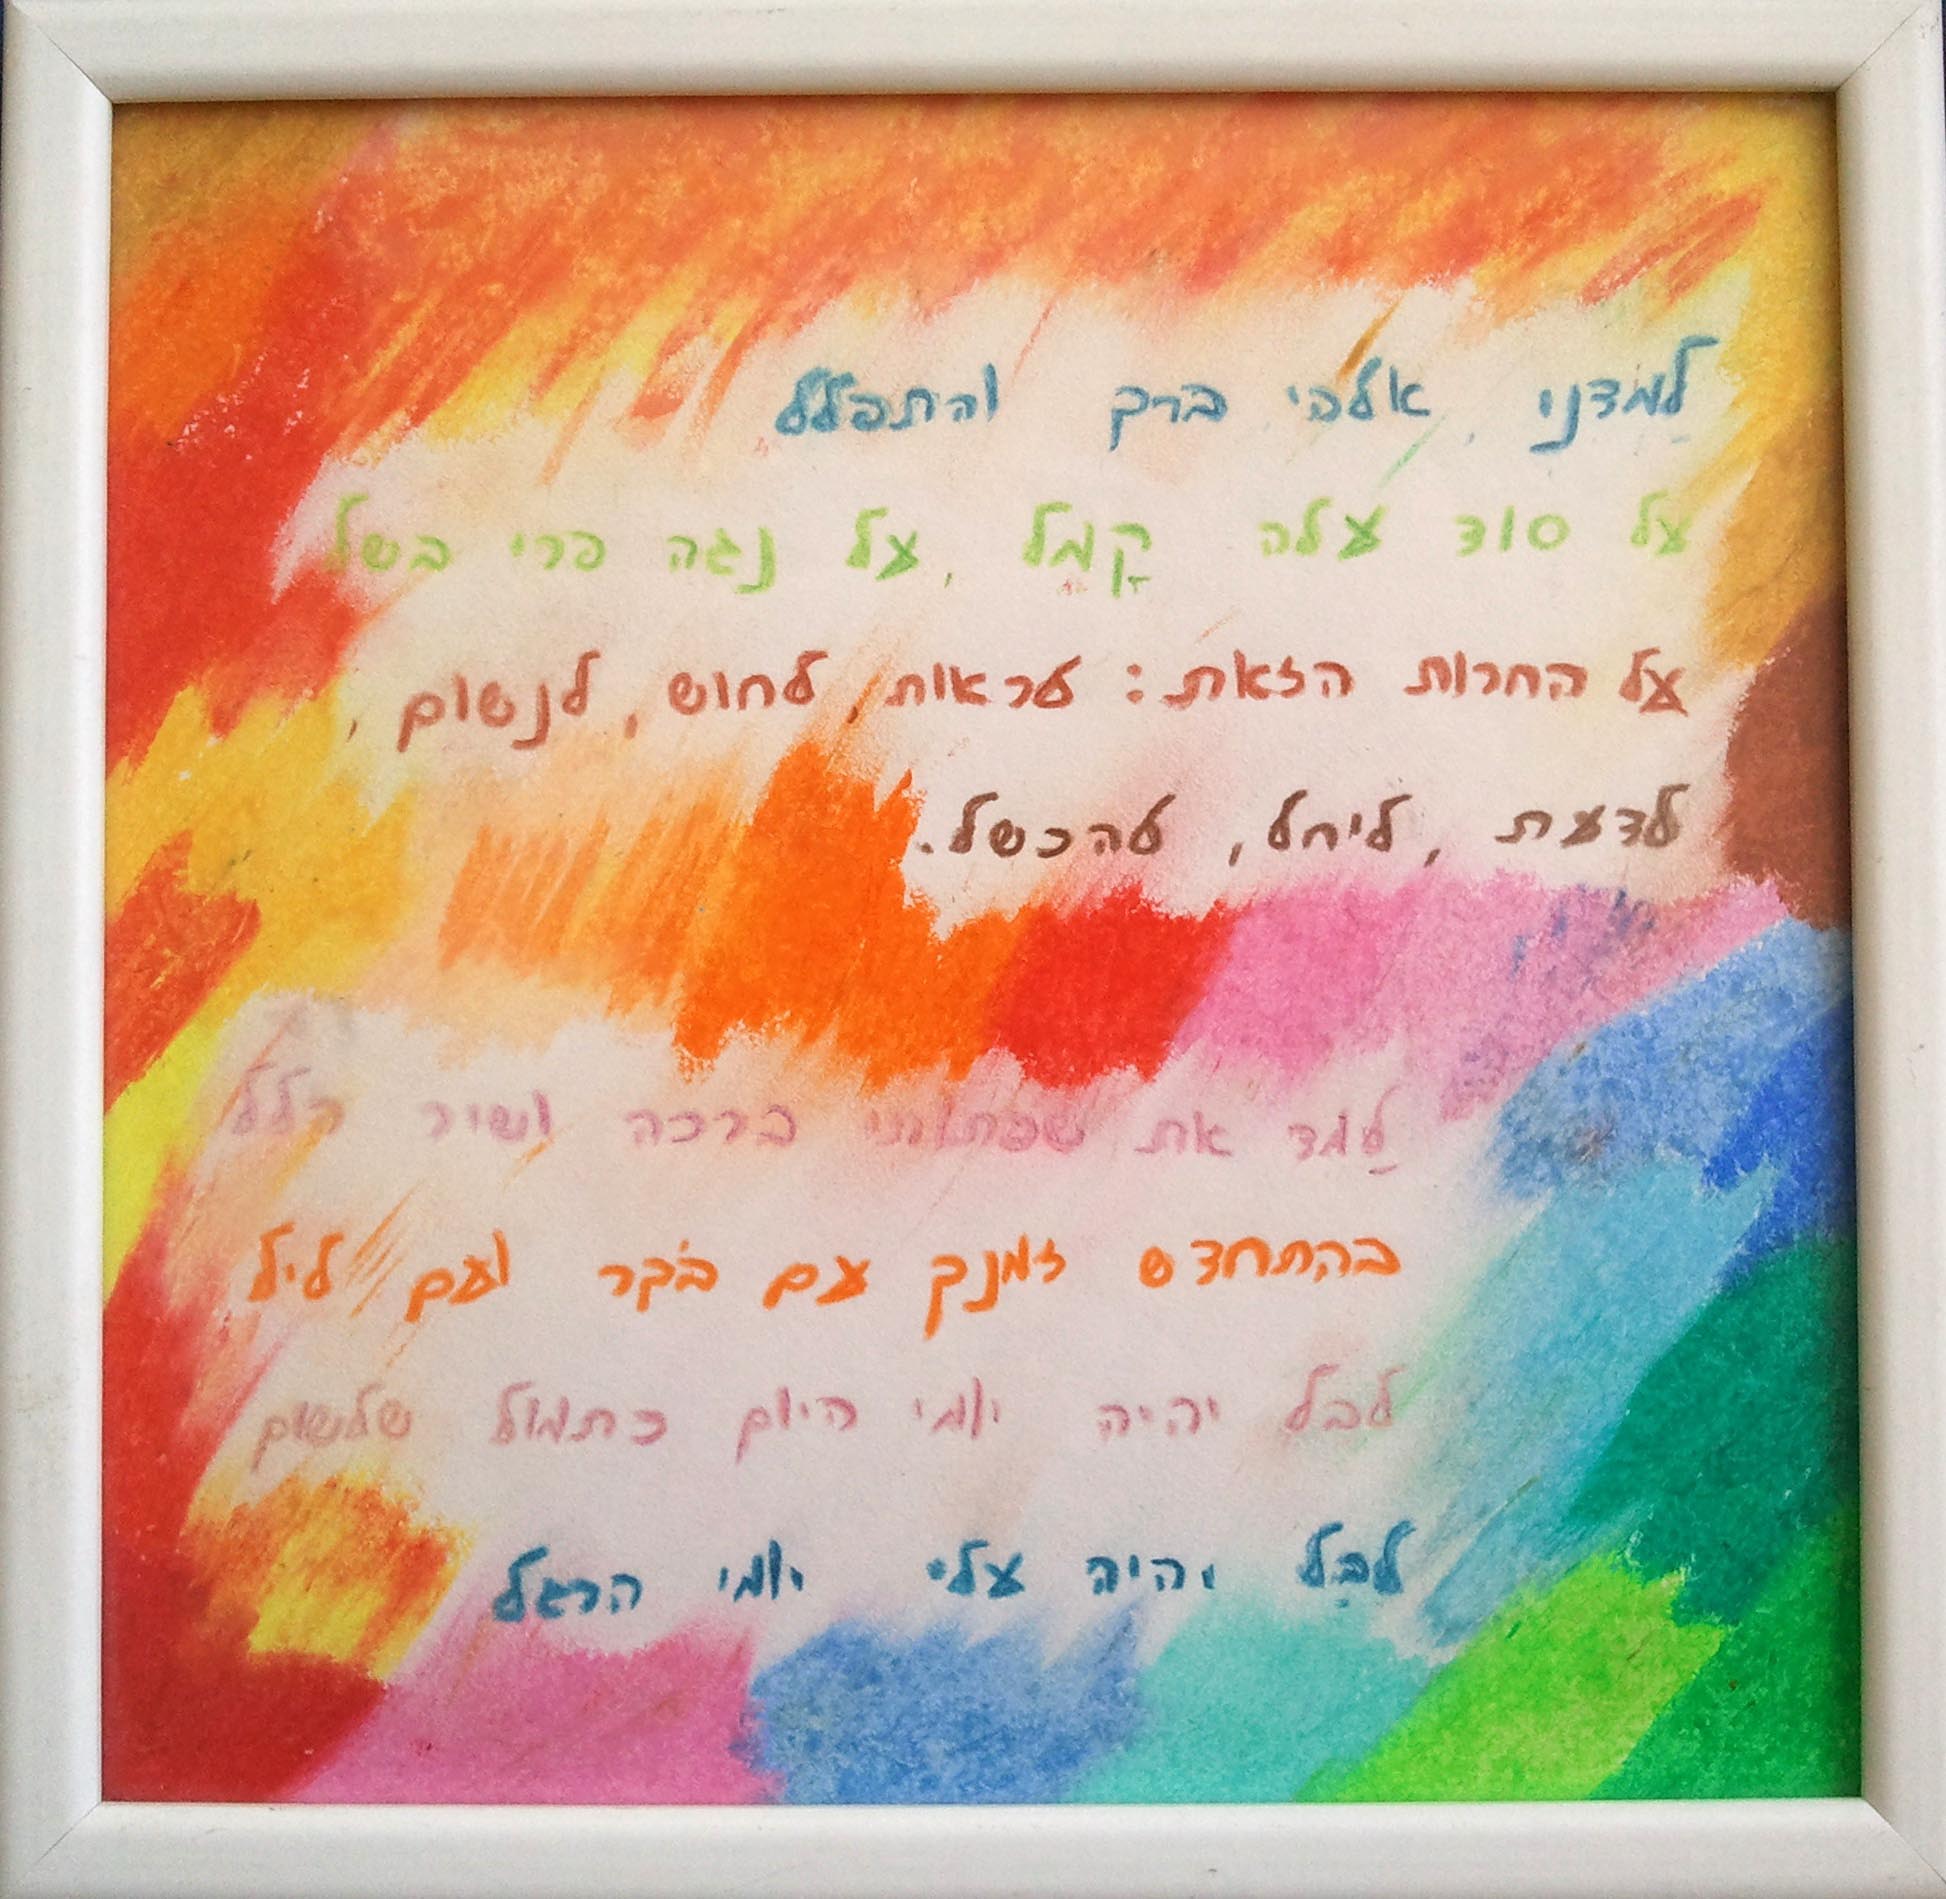 לַמדני, אלהי ברך והתפלל
על סוד עלה קָמֵל, על נגה פרי בשל
על החרות הזאת: לראות, לחוש, לנשום,
לדעת, ליחל, להכשל.
לַמד את שפתותי ברכה ושיר הלל
בהתחדש זמנך עם בֹקר ועם ליל
לבל יהיה יומי היום כתמול שלשום
לבַל יהיה עלי יומי הרגל